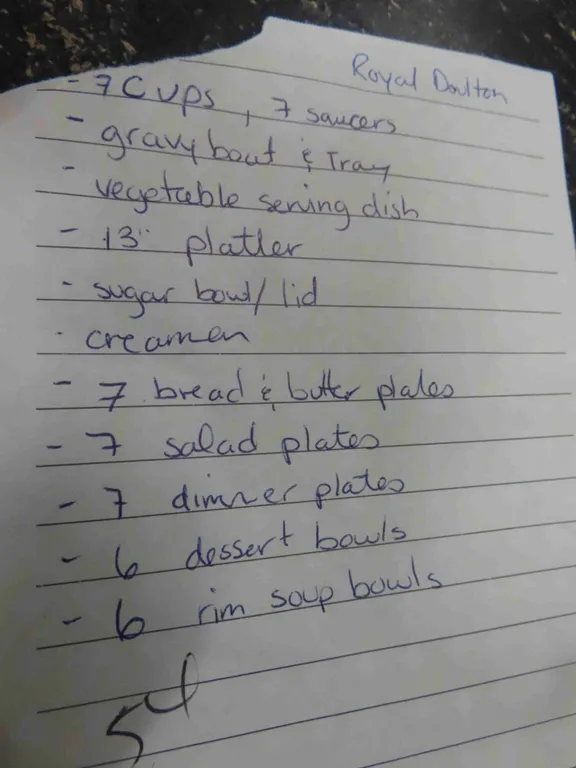 Royal Doulton
- 7 Cups, 7 saucers
- gravy boat & Tray
- vegetable serving dish
- 13" platter
- sugar bowl/lid
- creamer
- 7 bread & butter plates
- 7 salad plates
- 7 dinner plates
- 6 dessert bowls
- 6 rim soup bowls
54